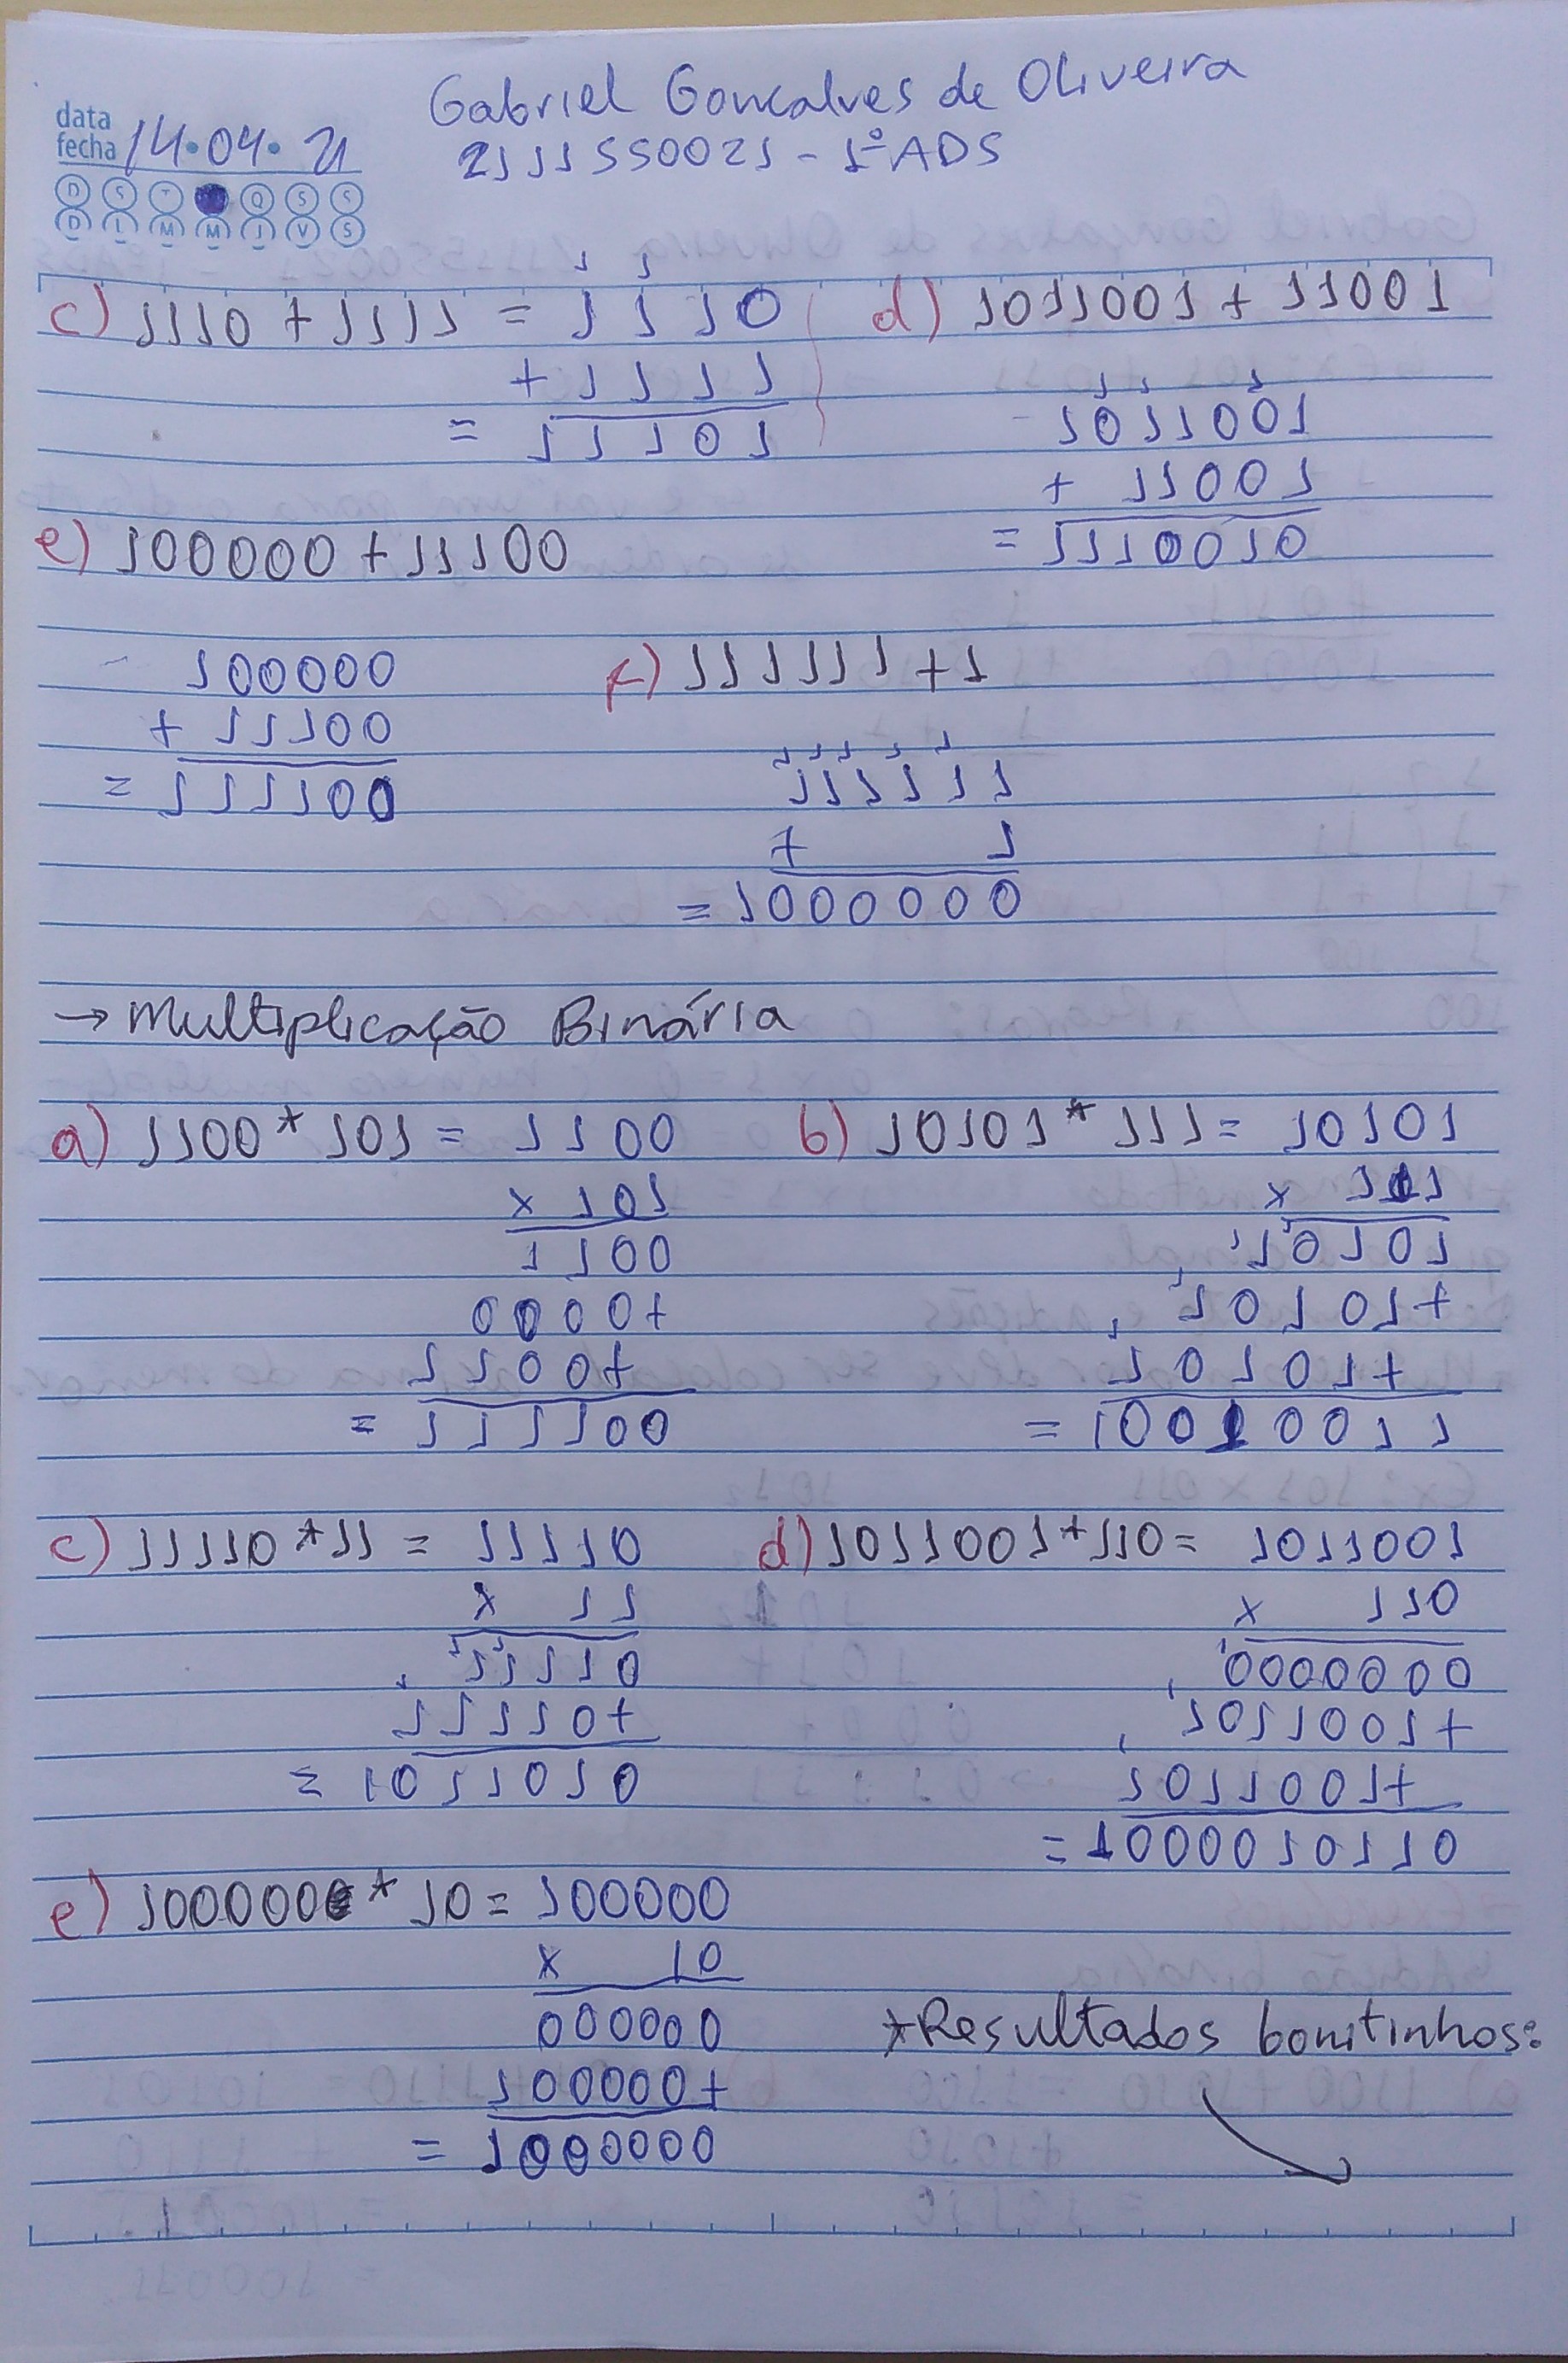 Gabriel Goncalves de Oliveira
data
fecha 14·04·21
2111550021 - 1º ADS
D S T Q S S
D L M M J V S
1 1
c) 1110 + 1111 = 1110
+ 1111
= 11101
d) 1011001 + 11001
1 1 1
1011001
+ 11001
= 1110010
e) 100000 + 11100
100000
+ 11100
= 111100
f) 111111 + 1
1 1 1 1 1
111111
+ 1
= 1000000
→ Multiplicação Binária
a) 1100 * 101 = 1100
x 101
1100
0000+
1100+
= 111100
b) 10101 * 111 = 10101
x 111
10101
10101+
10101+
= 10010011
c) 11110 * 11 = 11110
x 11
11110
11110+
= 1011010
d) 1011001 * 110 = 1011001
x 110
0000000
1011001+
1011001+
= 1000010110
e) 100000 * 10 = 100000
x 10
000000
100000+
= 1000000
*Resultados bonitinhos: